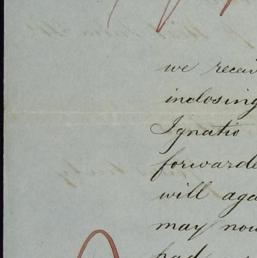 we recei
inclosing
Ignatio
forwarde
will aga
may now
had